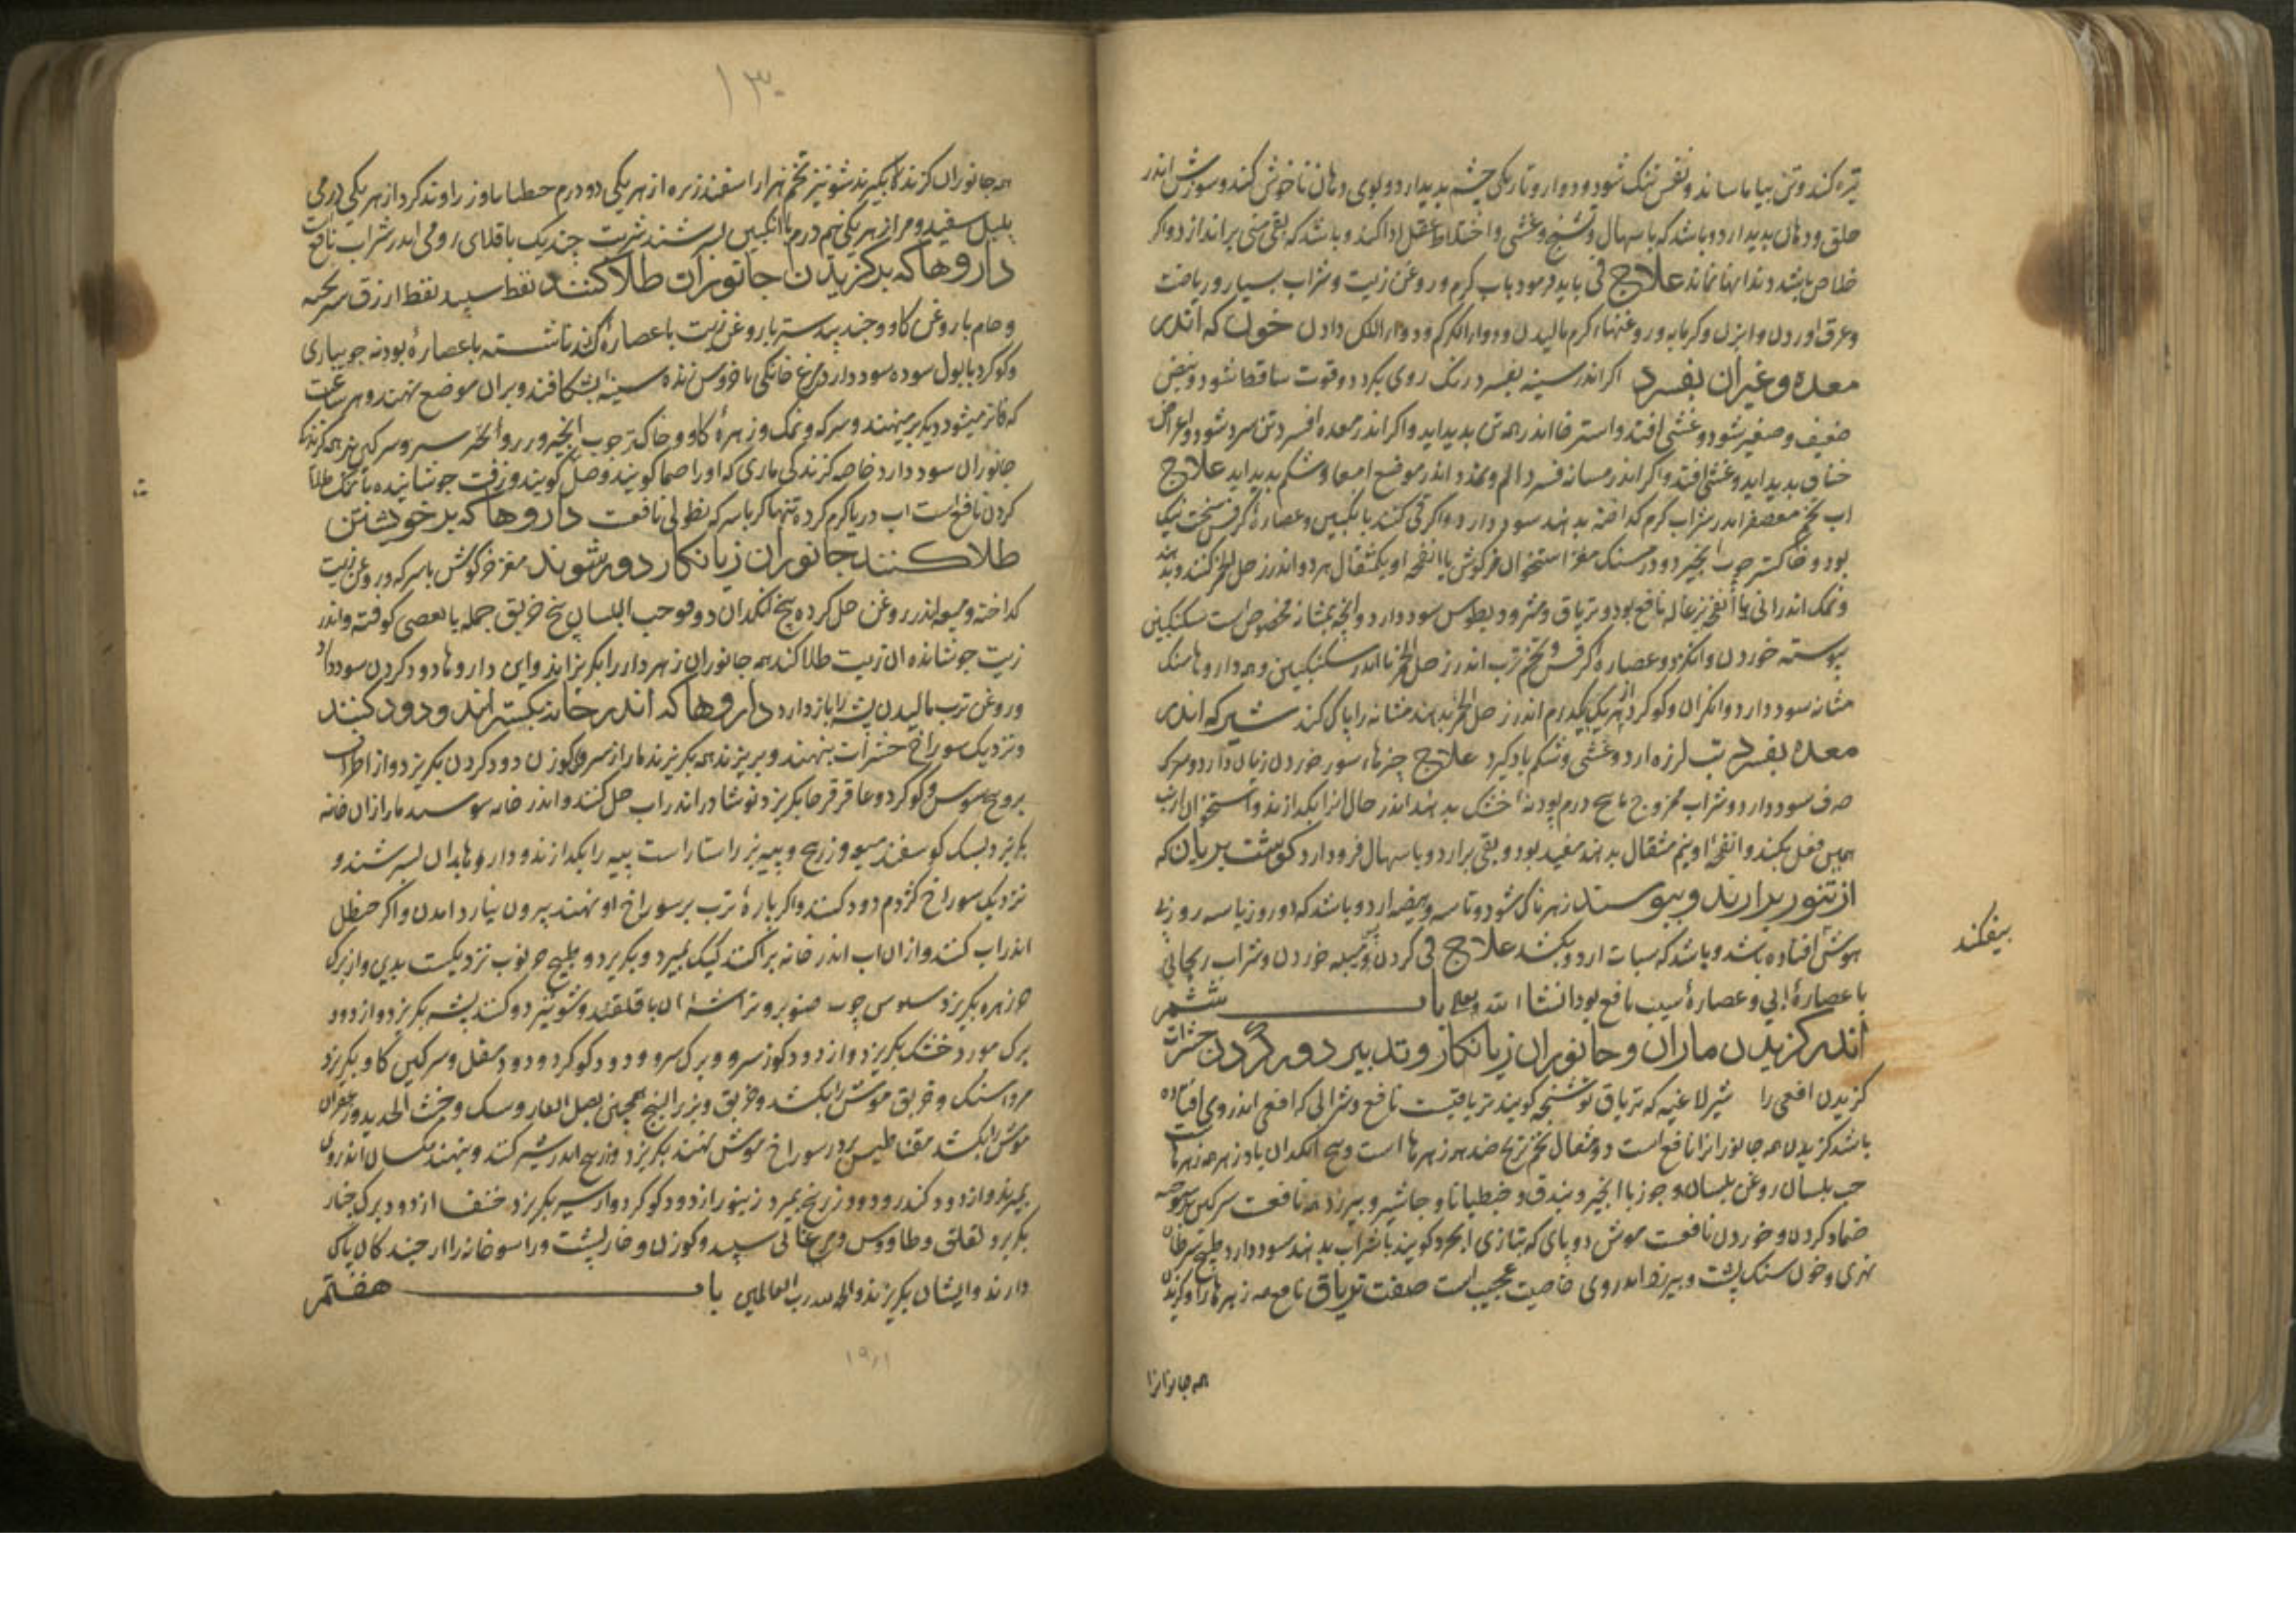 تیره کند و تن بیاماساند و نفس تنک شود و دوار و تاریکی چشم پدید ارد و بوی دهان ناخوش کند و سوزش اندر
حلق و دهان پدید ارد و باشد که باسهال و تشنج و غشی و اختلاط عقل ادا کند و باشد که بقی منی براندازد و اکر
خلاص یابد دندانها نماند علاج قی باید فرمود باب کرم و روغن زیت و شراب بسیار و ریاضت
و عرق اوردن و ابزن و کرمابه و روغنهاء کرم مالیدن و دواء الکرکم و دواء اللک دادن خون که اندر
معده و غیر ان بفسرد اکر اندر سینه بفسرد رنک روی بکردد و قوت ساقط شود و نبض
ضعیف و صغیر شود و غشی افتد و استرخا اندر همه تن پدید اید و اکر اندر معده افسرد تن سرد شود و اعراض
خناق پدید اید و غشی افتد و اکر اندر مسانه فسرد الم و اندر موضع امعا و شکم پدید اید علاج
اب تخم معصفر اندر شراب کرم کداخته بدهند سود دارد و اکر قی کنند بانکبین و عصارۀ کرفس سخت نیک
بود و خاکستر چوب انجیر دو درمسنک مغز استخوان خرکوش یا انفحه او یکمثقال هر دو اندر خل الخمر کنند و بدهند
و نمک اندرانی با انفحه بزغاله نافع بود و تریاق و مثرودیطوس سود دارد و انچه بمثانه مخصوص است سکنکبین
پیوسته خوردن و انکژد و عصارۀ کرفس و تخم ترب اندر خل الخمر یا اندر سکنکبین و همه داروها سنک
مثانه سود دارد و انکژان و کوکرد از هر یک یکدرم اندر خل الخمر بدهند مثانه را پاک کند شیر که اندر
معده بفسرد تب لرزه ارد و غشی و شکم باد کیرد علاج چیزهاء شور خوردن زیان دارد و سرکه
صرف سود دارد و شراب ممزوج با پنج درم پودنۀ خشک بدهند اندر حال انرا بکدازند و استخوان ارنب
همین فعل بکند و انفحۀ او نیم مثقال بدهند مفید بود و بقی برارد و باسهال فرود ارد کوشت بریان که
از تنور برارند و بپوسند زهرناک شود و تاسه و هیضه ارد و باشد که دو روز یا سه روز بی
هوش افتاده باشد و باشد که سبات ارد و بکشد علاج قی کردن و خوردن و شراب ریحانی
با عصارۀ ابی و عصارۀ سیب نافع بود انشاء الله باب ششم
اندر کزیدن ماران و جانوران زیانکار و تدبیر دور کردن حشرات
کزیدن افعی را شیر لاغیه که تریاق کویند تریاقیست نافع و شرابی که افعی اندر وی افتاده
باشد کزیدن همه جانورانرا نافع است دو مثقال تخم ترنج ضد همه زهرها است و بیخ انکدان پادزهر همه زهرهاست
حب بلسان روغن بلسان و جوز با انجیر و بندق و جنطیانا و جاشیر و بیرزد همه نافعست سرکین سوخته
ضماد کردن و خوردن نافعست موش دوپای که بتازی کویند با شراب بدهند سود دارد طبیخ سرطان
نهری و خون سنک پشت و بیرزد اندر وی خاصیت عجیب است صفت تریاق نافع همه زهرها را و کزیدن
همه جانورانرا
بیفکند
۱۳۰
همه جانوران کزنده بکیرند شونیز تخم هزار اسفند زیره از هر یکی دو درم جنطیانا و زراوند کرد از هر یکی درمی
پلپل سفید و مر از هر یکی نیم درم با انکبین بسرشند شربت چند یک باقلای رومی اندر شراب نافع است
داروها که بر کزیدن جانوران طلا کنند نفط سپید نفط ازرق
و خام با روغن کاو و جندبیدستر با روغن زیت با عصارۀ کندنا شسته با عصارۀ بودنه جویباری
و کوکرد با بول سوده سود دارد مرغ خانکی یا خروس زنده سینه بشکافند و بران موضع نهند و هر ساعت
که فاتر میشود دیکر برمینهند و سرکه و نمک و زهرۀ کاو و خاکستر چوب انجیر و سیر و سرکین بز همه کزندکان
جانوران سود دارد خاصه کزندکی ماری که اورا صما کویند و زفت جوشانیده با نمک طلا
کردن نافع است اب دریا کرم کرده تنها کر با سرکه نطولی نافعست داروها که بر خویشتن
طلا کنند جانوران زیانکار دور شوند مغز خرکوش با سرکه و روغن زیت
کداخته و میعه اندر روغن حل کرده بیخ انکدان و حب البلسان بیخ خربق جمله یا بعضی کوفته و اندر
زیت جوشانده ان زیت طلا کند همه جانوران زهردار را بکریزاند و این داروها دود کردن سود دارد
و روغن ترب مالیدن پشه را باز دارد داروها که اندر خانه بکسترانند و دود کنند
و نزدیک سوراخ حشرات بنهند و بریزند همه بکریزند مار از سرو کوزن دود کردن بکریزد و از اطراف
بروج سوس و کوکرد و عاقرقرحا بکریزد نوشادر اندر اب حل کنند و اندر خانه مار ازان خانه
بکریزد بسک کوسفند میعه و زرنیخ و پیه بز راستاراست پیه را بکدازند و داروها بدان بسرشند و
نزدیک سوراخ کژدم دود کنند و اکر پارۀ ترب بر سوراخ او نهند بیرون نیارد امدن و اکر حنظل
اندر اب کنند و ازان اب اندر خانه براکنند کیک بمیرد و بکریزد و طبیخ خرنوب نزدیکست بدین و از برک
خرزهره بکریزد سبوس چوب صنوبر و تراشۀ ان با قلقند و شونیز دود کنند پشه بکریزد و از دود
برک مورد خشک بکریزد و از دود کوز سرو و برک سرو و دود کوکرد و دود مقل و سرکین کاو بکریزد
مرداسنک و خربق موش را بکشد و خربق و بزر البنج همچنین بصل الفار و سک و خبث الحدید و زعفران
موش را بکشد مقناطیس بر در سوراخ موش نهند بکریزد زرنیخ اندر شیر کنند و بنهند مکسان اندر وی
بمیرند و از دود کندر و دود زرنیخ بمیرد زنبور از دود کوکرد و از سیر بکریزد خنفسا از دود برک چنار
بکریزد لقلق و طاووس و مرغابی سپید و کوزن و خارپشت و راسو خانه را از جنبندکان پاک
دارند و ایشان بکریزند والحمدلله رب العالمین باب هفتم